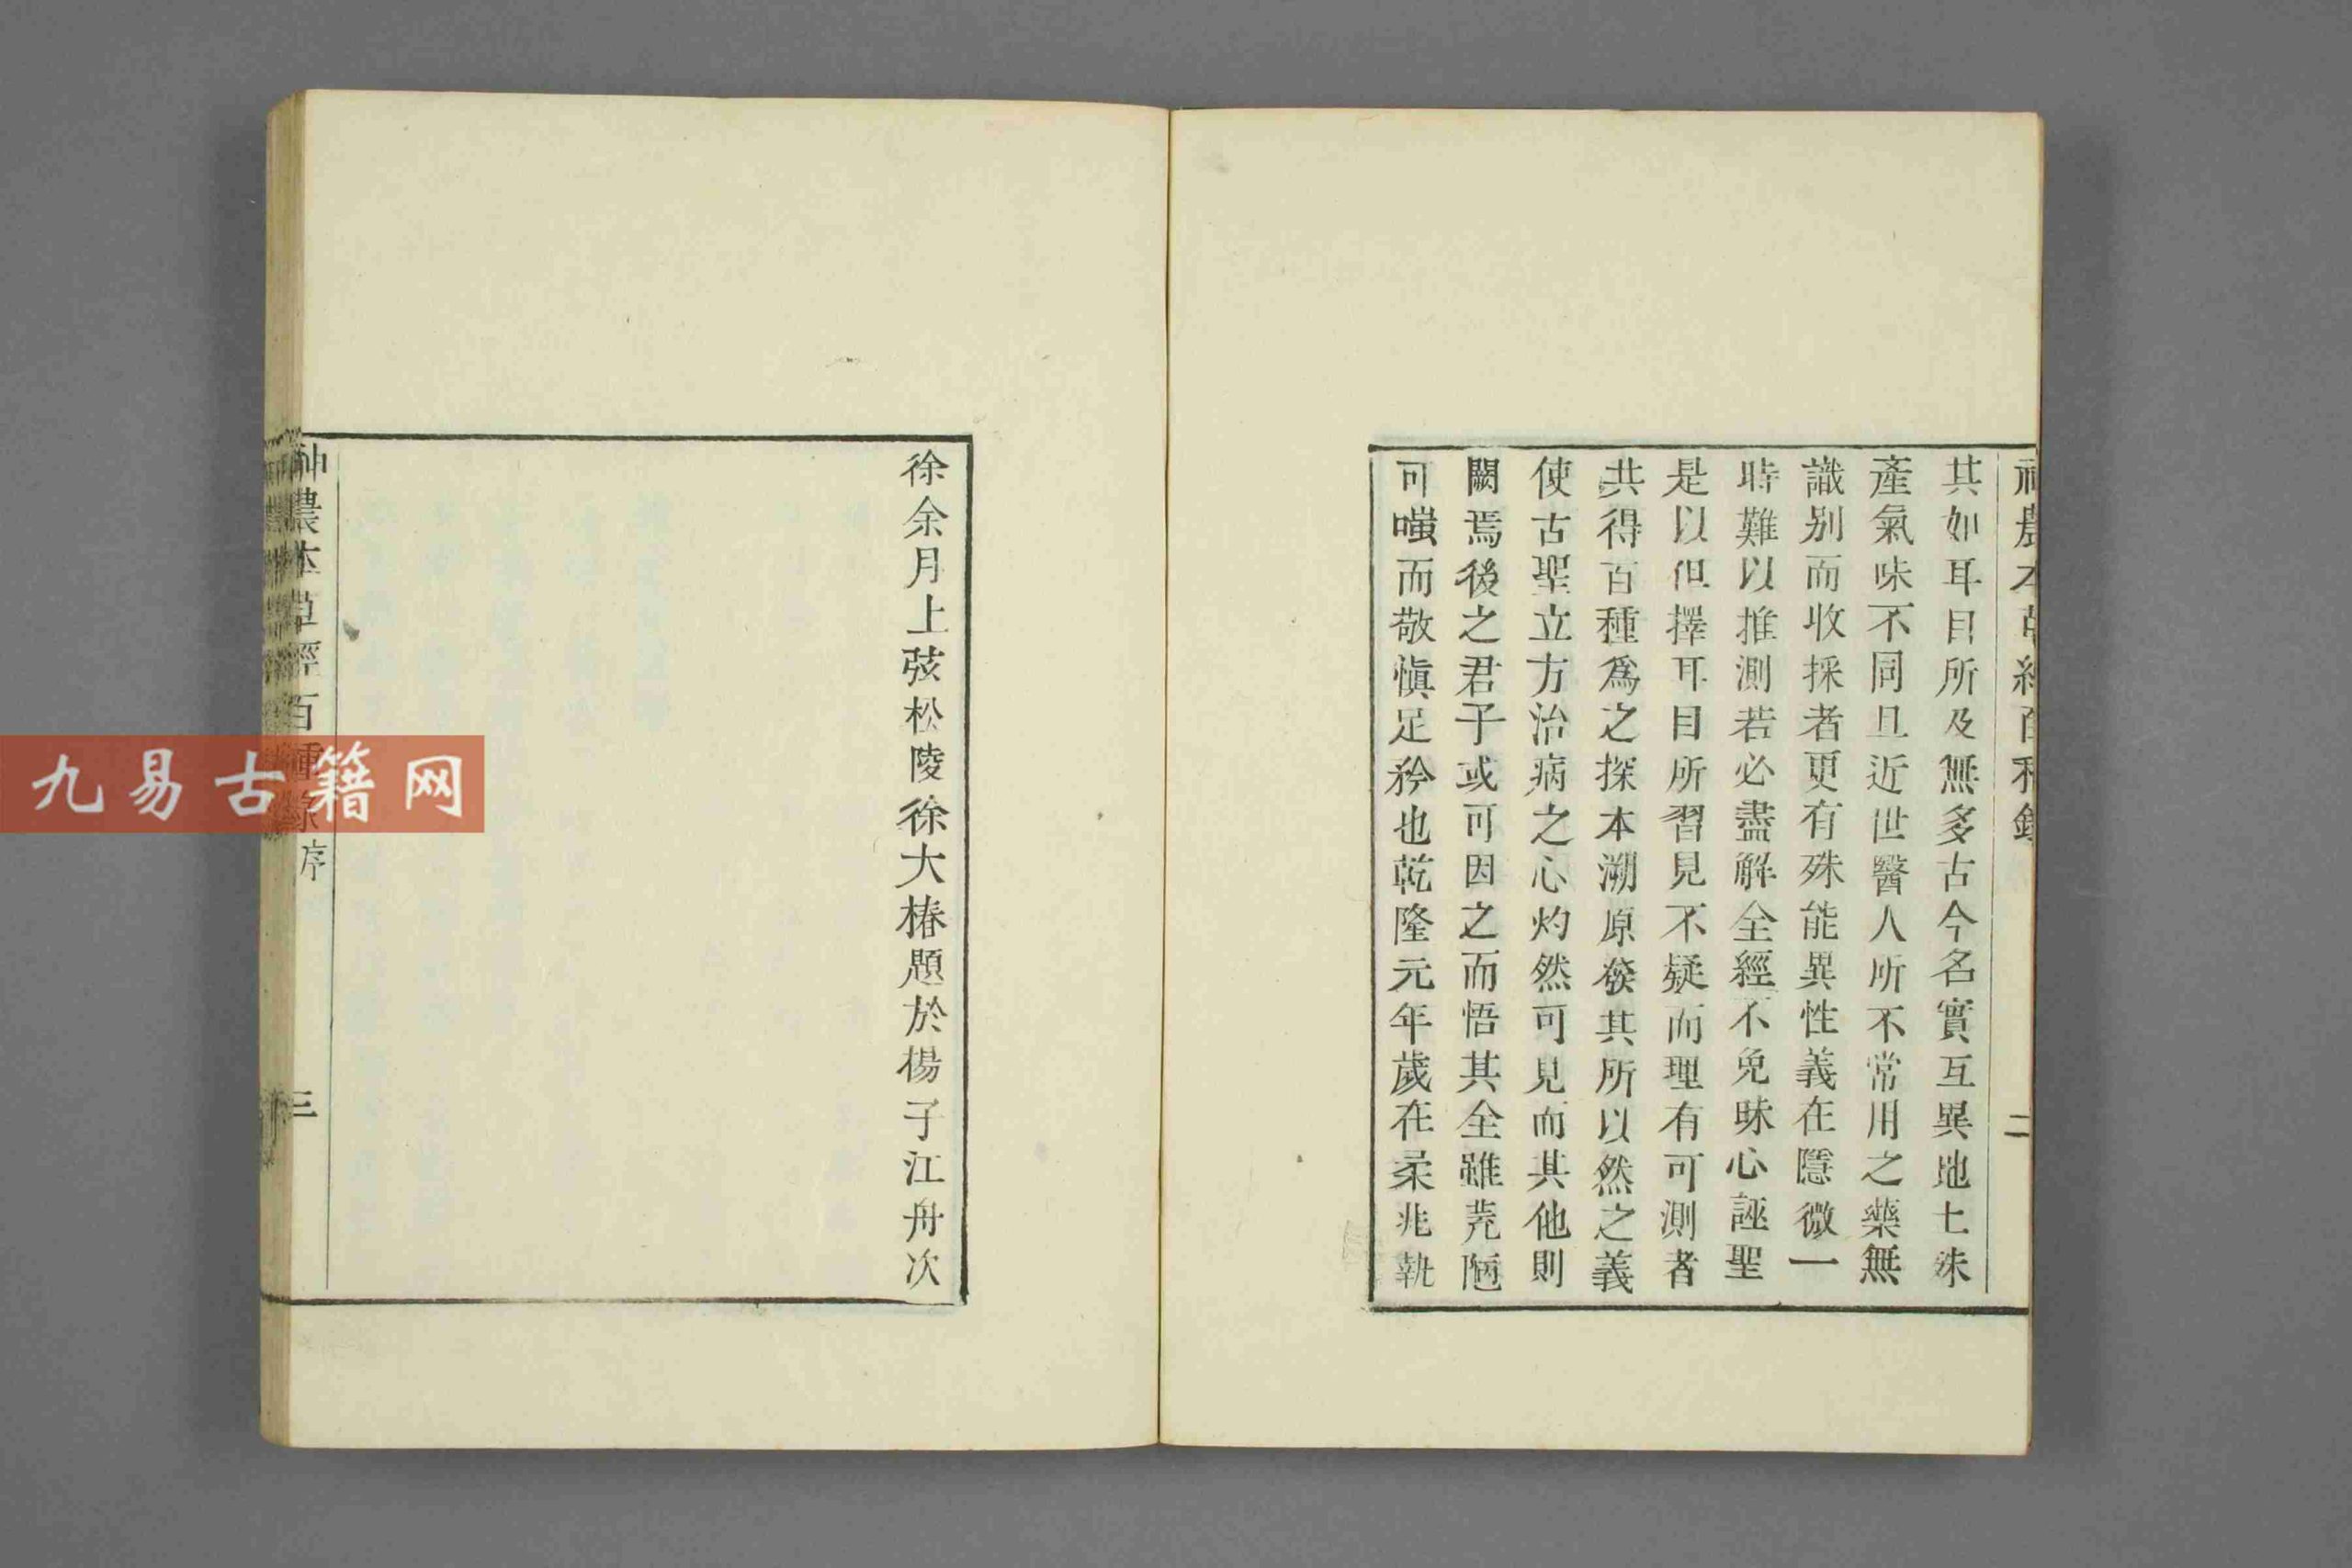 神農本草經百種錄
二
其如耳目所及無多古今名實互異地土殊
產氣味不同且近世醫人所不常用之藥無
識別而收採者更有殊能異性義在隱微一
時難以推測若必盡解全經不免昧心誣聖
是以但擇耳目所習見不疑而理有可測者
共得百種爲之探本溯原發其所以然之義
使古聖立方治病之心灼然可見而其他則
闕焉後之君子或可因之而悟其全雖荒陋
可嗤而敬愼足矜也乾隆元年歲在柔兆執
徐余月上弦松陵徐大椿題於揚子江舟次
神農本草經百種錄序
三
九易古籍网